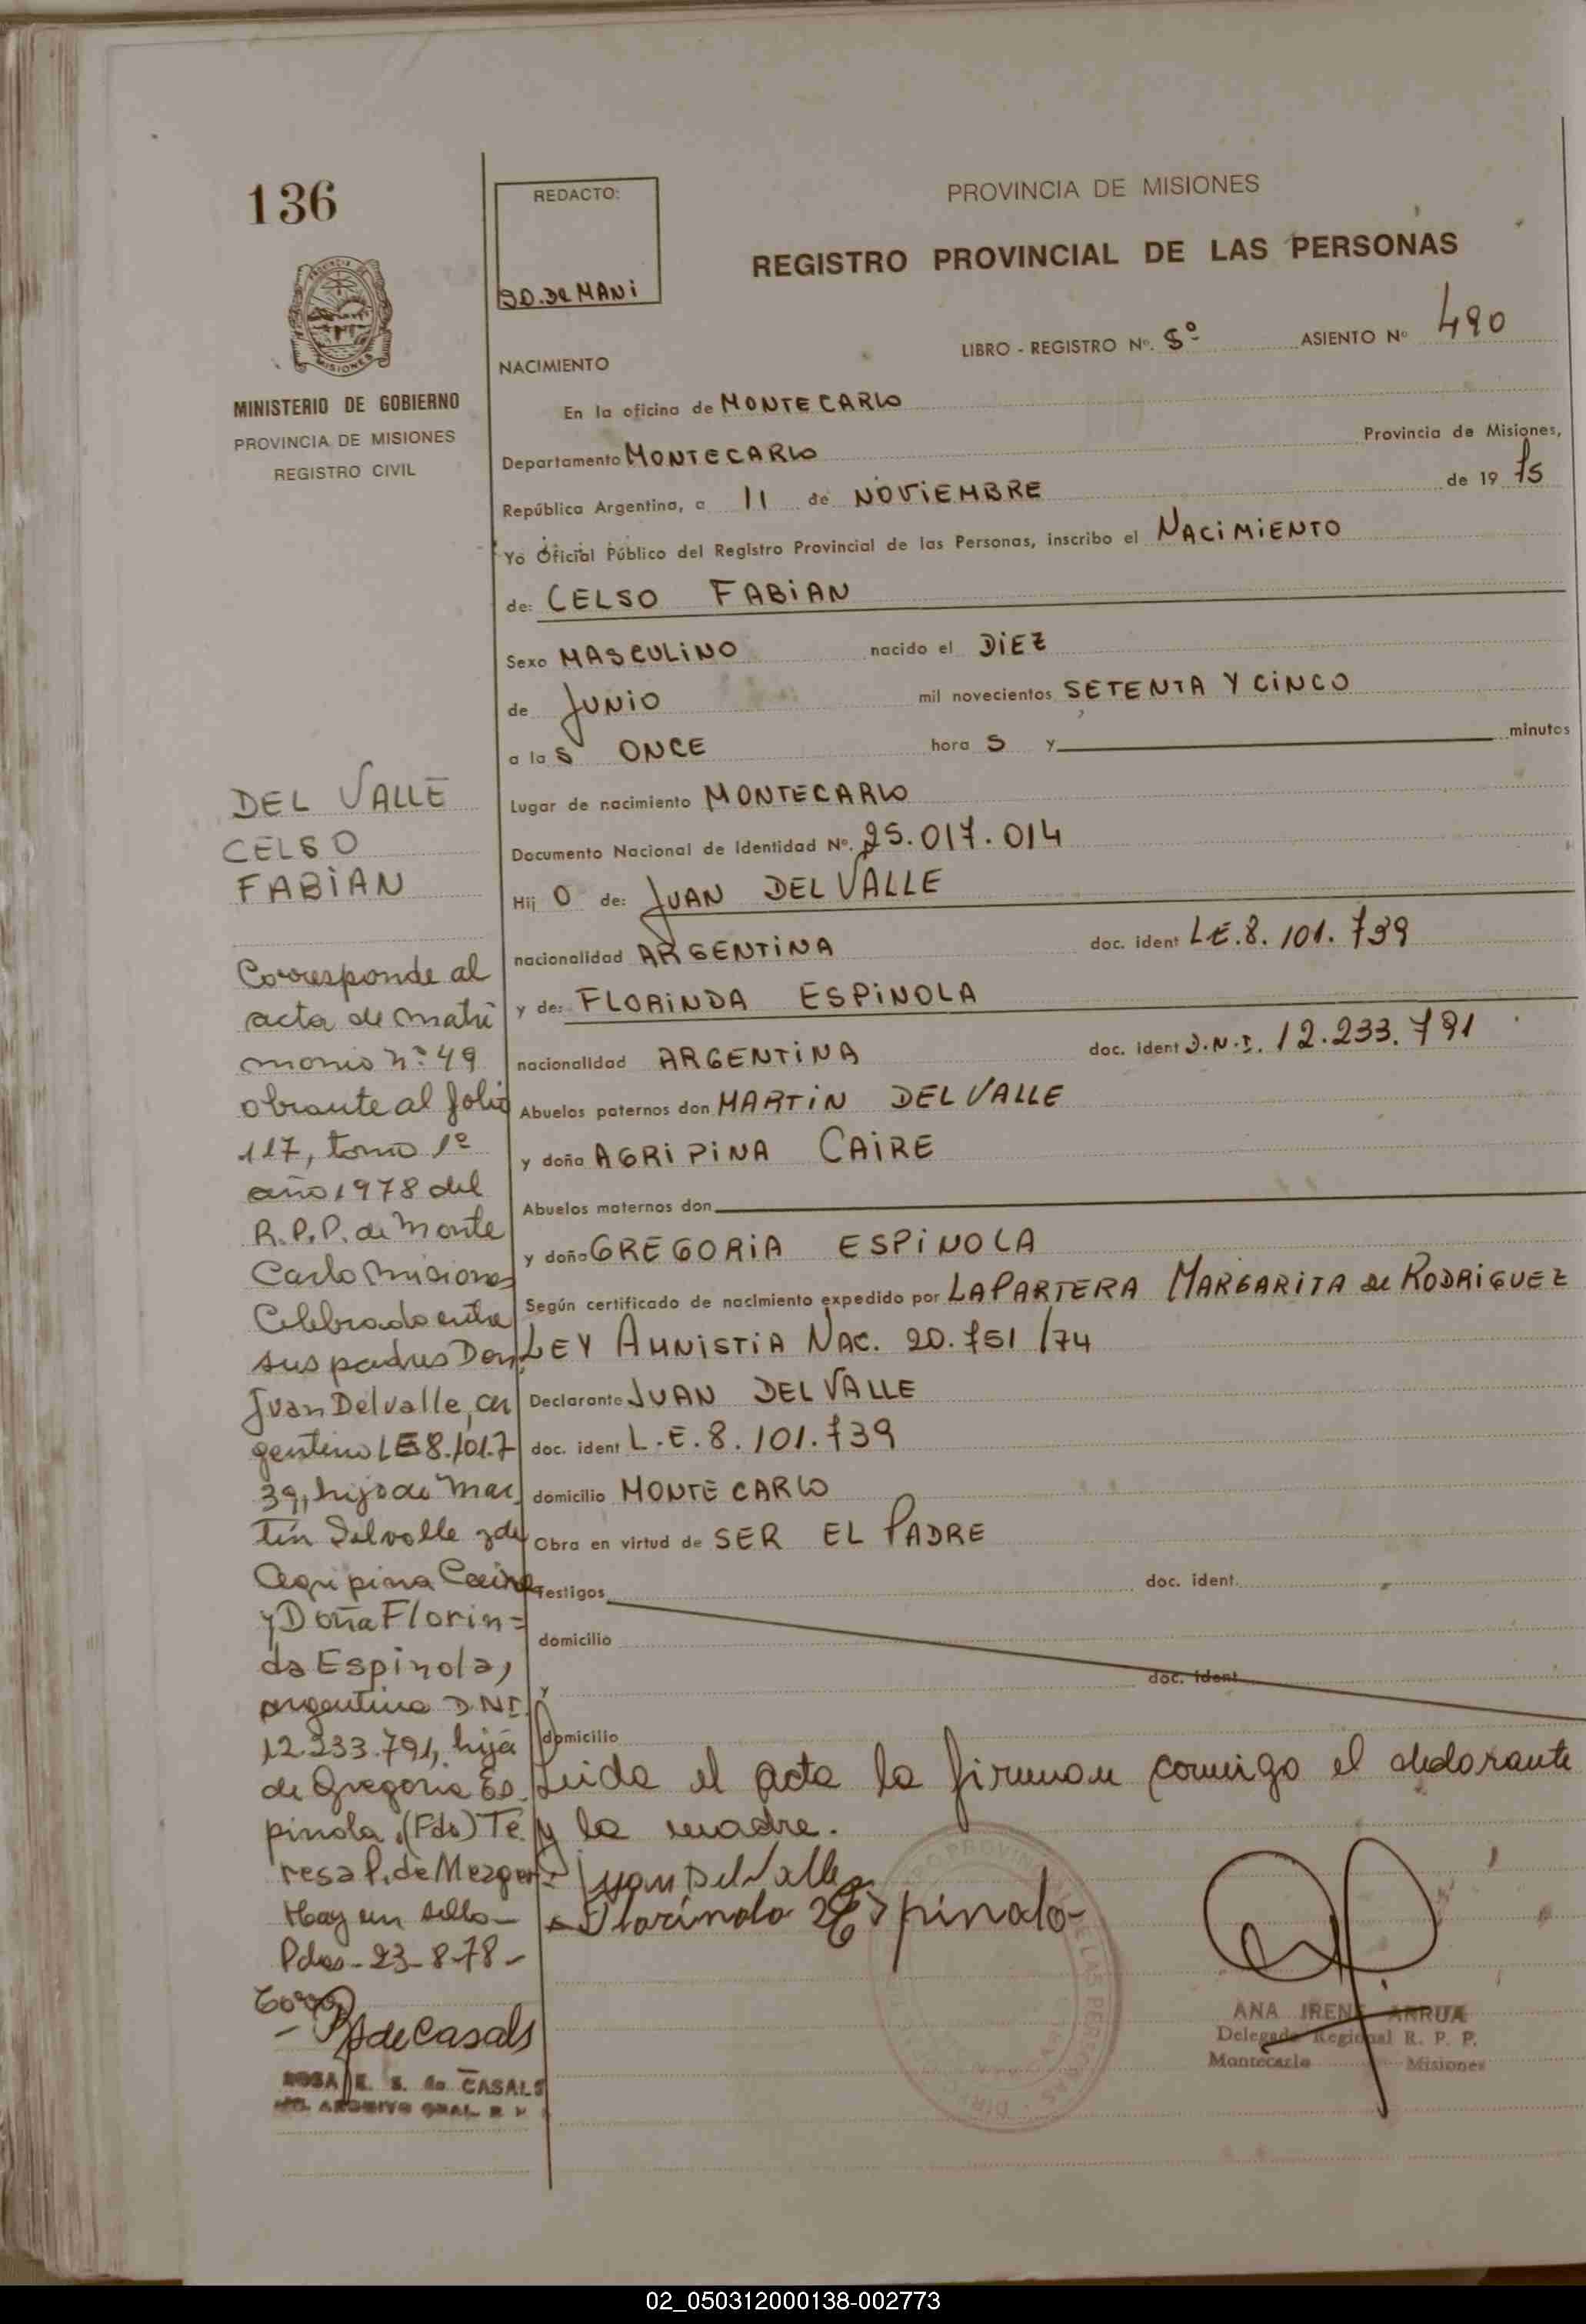 136
PROVINCIA DE MISIONES
MINISTERIO DE GOBIERNO
PROVINCIA DE MISIONES
REGISTRO CIVIL
DEL VALLE
CELSO
FABIAN
Corresponde al
acta de matri
monio nº 49
obrante al folio
117, tomo 1º
año 1978 del
R.P.P. de Monte
Carlo Misiones
Celebrado entre
sus padres Don
Juan Delvalle, ar
gentino LE 8.101.7
39, hijo de Mar
tin Delvalle y de
Agripina Caire
y Doña Florin=
da Espinola,
argentina DNI.
12.233.791, hija
de Gregoria Es
pinola. (Fdo) Te
resa P. de Mezger
Hay un sello-
Pdas-23-8-78-
de Casals
ROSA E. S. de CASALS
REDACTO:
PROVINCIA DE MISIONES
REGISTRO PROVINCIAL DE LAS PERSONAS
LIBRO - REGISTRO Nº. 5º ASIENTO Nº 490
NACIMIENTO
En la oficina de MONTECARLO
Departamento MONTECARLO Provincia de Misiones,
República Argentina, a 11 de NOVIEMBRE de 19 75
Yo Oficial Público del Registro Provincial de las Personas, inscribo el NACIMIENTO
de: CELSO FABIAN
Sexo MASCULINO nacido el DIEZ
de JUNIO mil novecientos SETENTA Y CINCO
a la S ONCE hora S y minutos
Lugar de nacimiento MONTECARLO
Documento Nacional de Identidad Nº. 25.017.014
Hij O de: JUAN DEL VALLE
nacionalidad ARGENTINA doc. ident L.E. 8.101.739
y de: FLORINDA ESPINOLA
nacionalidad ARGENTINA doc. ident D.N.I. 12.233.791
Abuelos paternos don MARTIN DEL VALLE
y doña AGRIPINA CAIRE
Abuelos maternos don
y doña GREGORIA ESPINOLA
Según certificado de nacimiento expedido por LA PARTERA MARGARITA de RODRIGUEZ
LEY AMNISTIA NAC. 20.751/74
Declarante JUAN DEL VALLE
doc. ident L.E. 8.101.739
domicilio MONTECARLO
Obra en virtud de SER EL PADRE
Testigos doc. ident.
domicilio
y doc. ident
domicilio
Leida el acta la firman conmigo el declarante
y la madre.
Juan Del Valle
Florinda Espinola
ANA IRENE ARRUA
Delegada Regional R. P. P.
Montecarlo Misiones
02_050312000138-002773